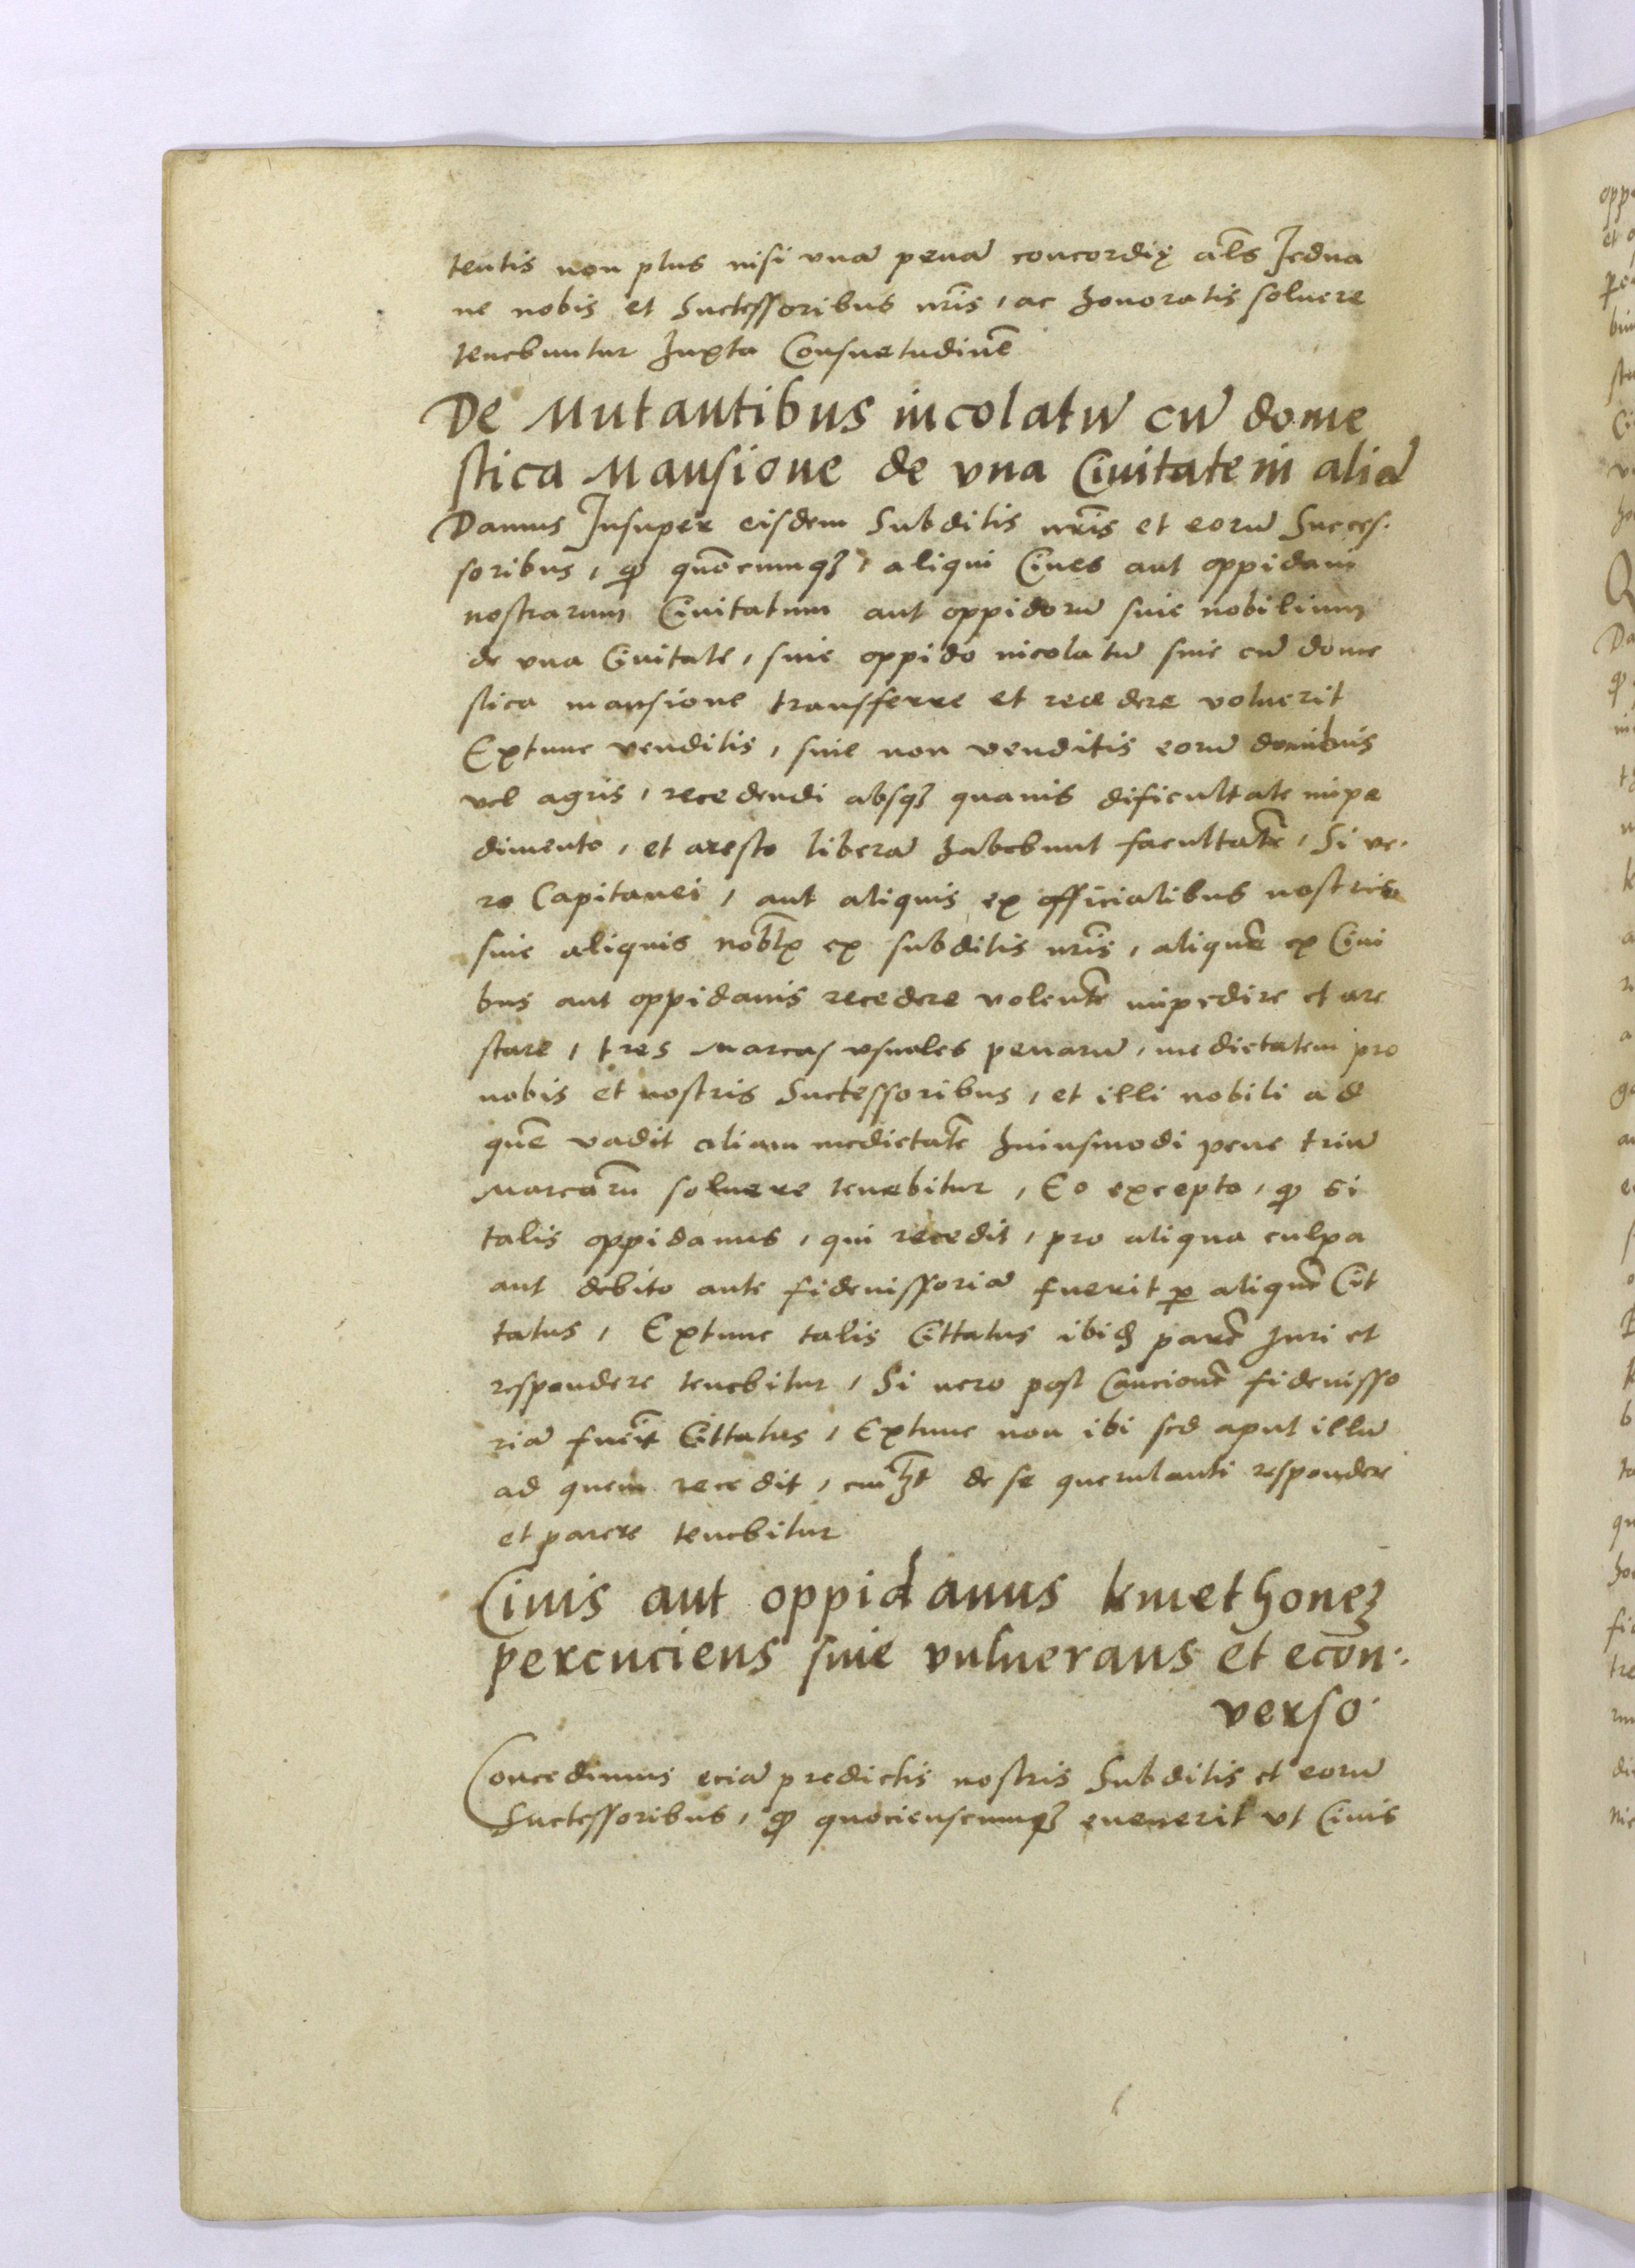 tentis non plus nisi vnā penā concordię al̄s Jedna
ne nobis et Suctessoribus nr̄is, ac honoratis soluere
tenebuntur Juxta Consuetudinē
De Mutantibus incolatū cū dome
stica Mansione de vna Ciuitate in aliā
Damus Insuper eisdem Subditis nr̄is et eorū Succes.
soribus, ꝙ quōcumqꝫ, aliqui Ciues aut oppidani
nostrarum Ciuitatum aut oppidorū siue nobilium
de vna Ciuitate, siue oppido incolatū siue cū dome
stica mansione transferre et recedere voluerit
Extunc venditis, siue non venditis eorū domibus
vel agris, recedendi absqꝫ quauis dificultate impe
dimento, et aresto liberā habebunt facultatē, Si ve.
ro Capitanei, aut aliquis ex officialibus nostris
siue aliquis nobīlꝫ ex subditis nr̄is, aliquē ex Ciui
bus aut oppidanis recedere volentē impedire et are
stare, tres Marcas vsuales penarū, medietatem pro
nobis et nostris Suctessoribus, et illi nobili ad
quē vadit aliam medietatē huiusmodi pene triū
Marcarū soluere tenebitur, Eo excepto, ꝙ si
talis oppidanus, qui recedit, pro aliqua culpa
aut debito ante fideiussoriā fuerit ꝑ aliquē Cit
tatus, Extunc talis Cittatus ibiđ parē Juri et
respondere tenebitur, Si uero post Caucionē fideiusso
riā fuerit Cittatus, Extunc non ibi sed aput illū
ad quem recedit, cuilꝫt de se querulanti respondere
et parere tenebitur
Ciuis aut oppidanus kmethoneꝫ
percuciens siue vulnerans et econ.
verso.
Concedimus eciā predictis nostris Subditis et eorū
Suctessoribus, ꝙ quocienscumqꝫ euenerit vt Ciuis